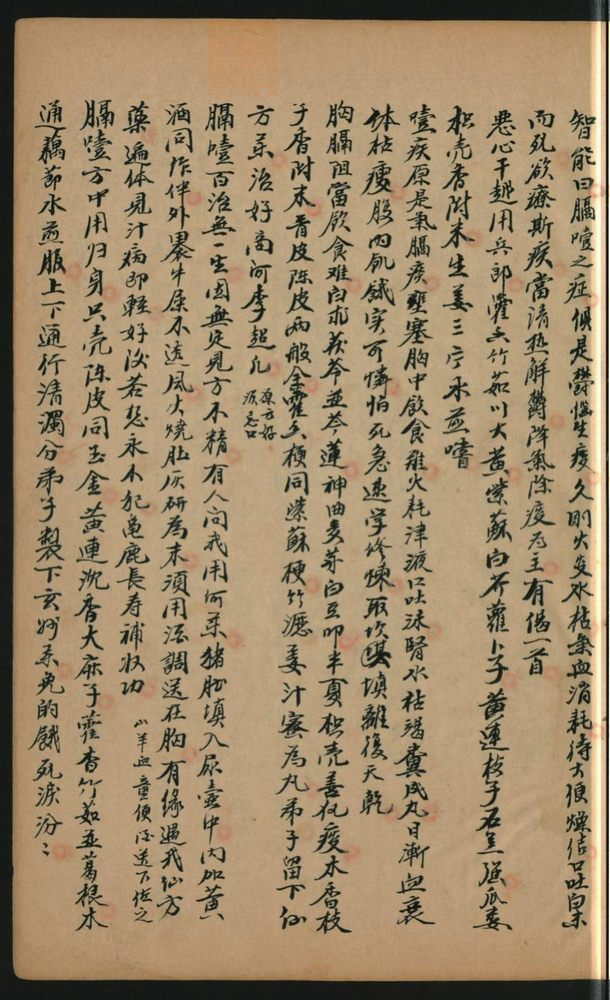 智能曰膈噎之症俱是鬱惱生痰久則火炎水枯氣血消耗待大便燥结口吐白沫
而死欲療斯疾當清熱觧鬱降氣除痰为主有偈一首
悪心干越用兵郎藿香竹茹川大黄紫蘇白芥蘿卜子黄連枝子石羔強瓜蒌
枳壳香附末生姜三片水煎嗜
噎疾原是氣膈痰壅塞胸中飲食難火耗津液口吐沫腎水枯竭糞成丸日漸血衰
体枯瘦腹内飢餓实可憐怕死急速学修煉取坎填離後天乾
胸膈阻當飲食难白朮茯苓並芩蓮神曲麦芽白豆叩半夏枳壳善化痰木香枝
子香附末青皮陈皮两般全藿香梗同紫蘇梗竹瀝姜汁蜜为丸弟子留下仙
方葯治好高河李超凡 原方好 痰忌口
膈噎百治無一生因無定見方不精有人问我用何葯猪肚填入尿壶中内加黄
酒同作伴外裹牛屎不透風火燒肚灰研为末須用酒調送在胸有缘遇我仙方
藥遍体見汁病即輕好後若想永不犯龟鹿長寿補收功 山羊血童便酒送下佐之
膈噎方中用归身只壳陈皮同玉金黄連沉香大麻子藿香竹茹並葛根木
通藕節水煎服上下通行清濁分弟子製下玄妙葯免的餓死淚汾〻